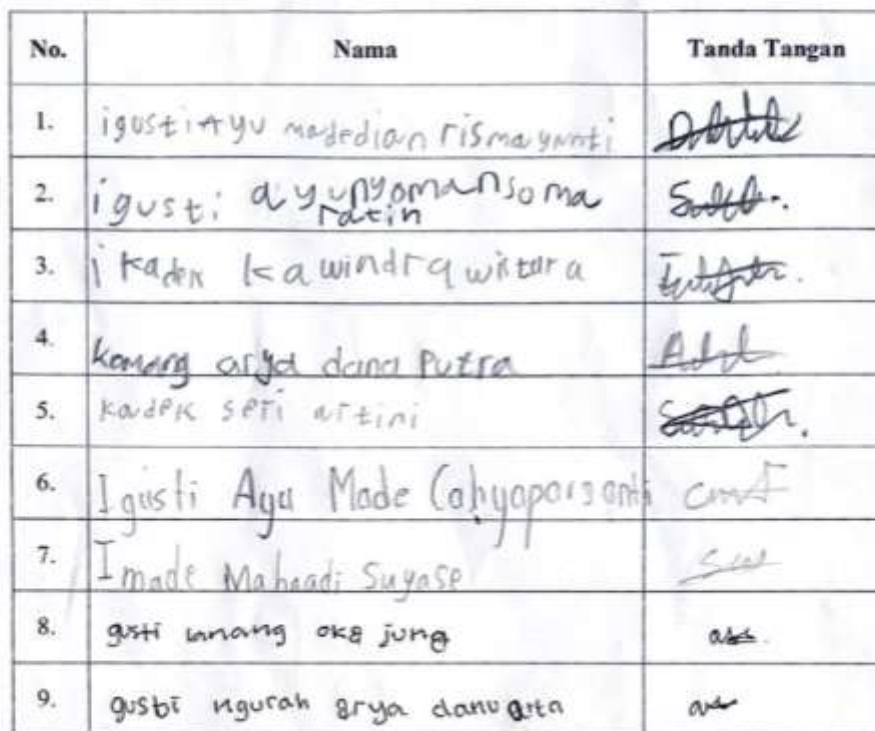 No. Nama Tanda Tangan
1. igusti Ayu madedian rismayanti
2. igusti ayunyoman soma
ratin
3. i kadek kawindra wistara
4. komang arya dana Putra
5. kadek seri artini
6. I gusti Ayu Made
7. I made Mahaadi Suyase
8. gusti oka jung
9. gusti ngurah arya danu arta